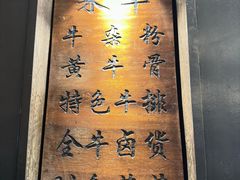 牛杂粉
黄牛骨
特色牛排
全牛卤货